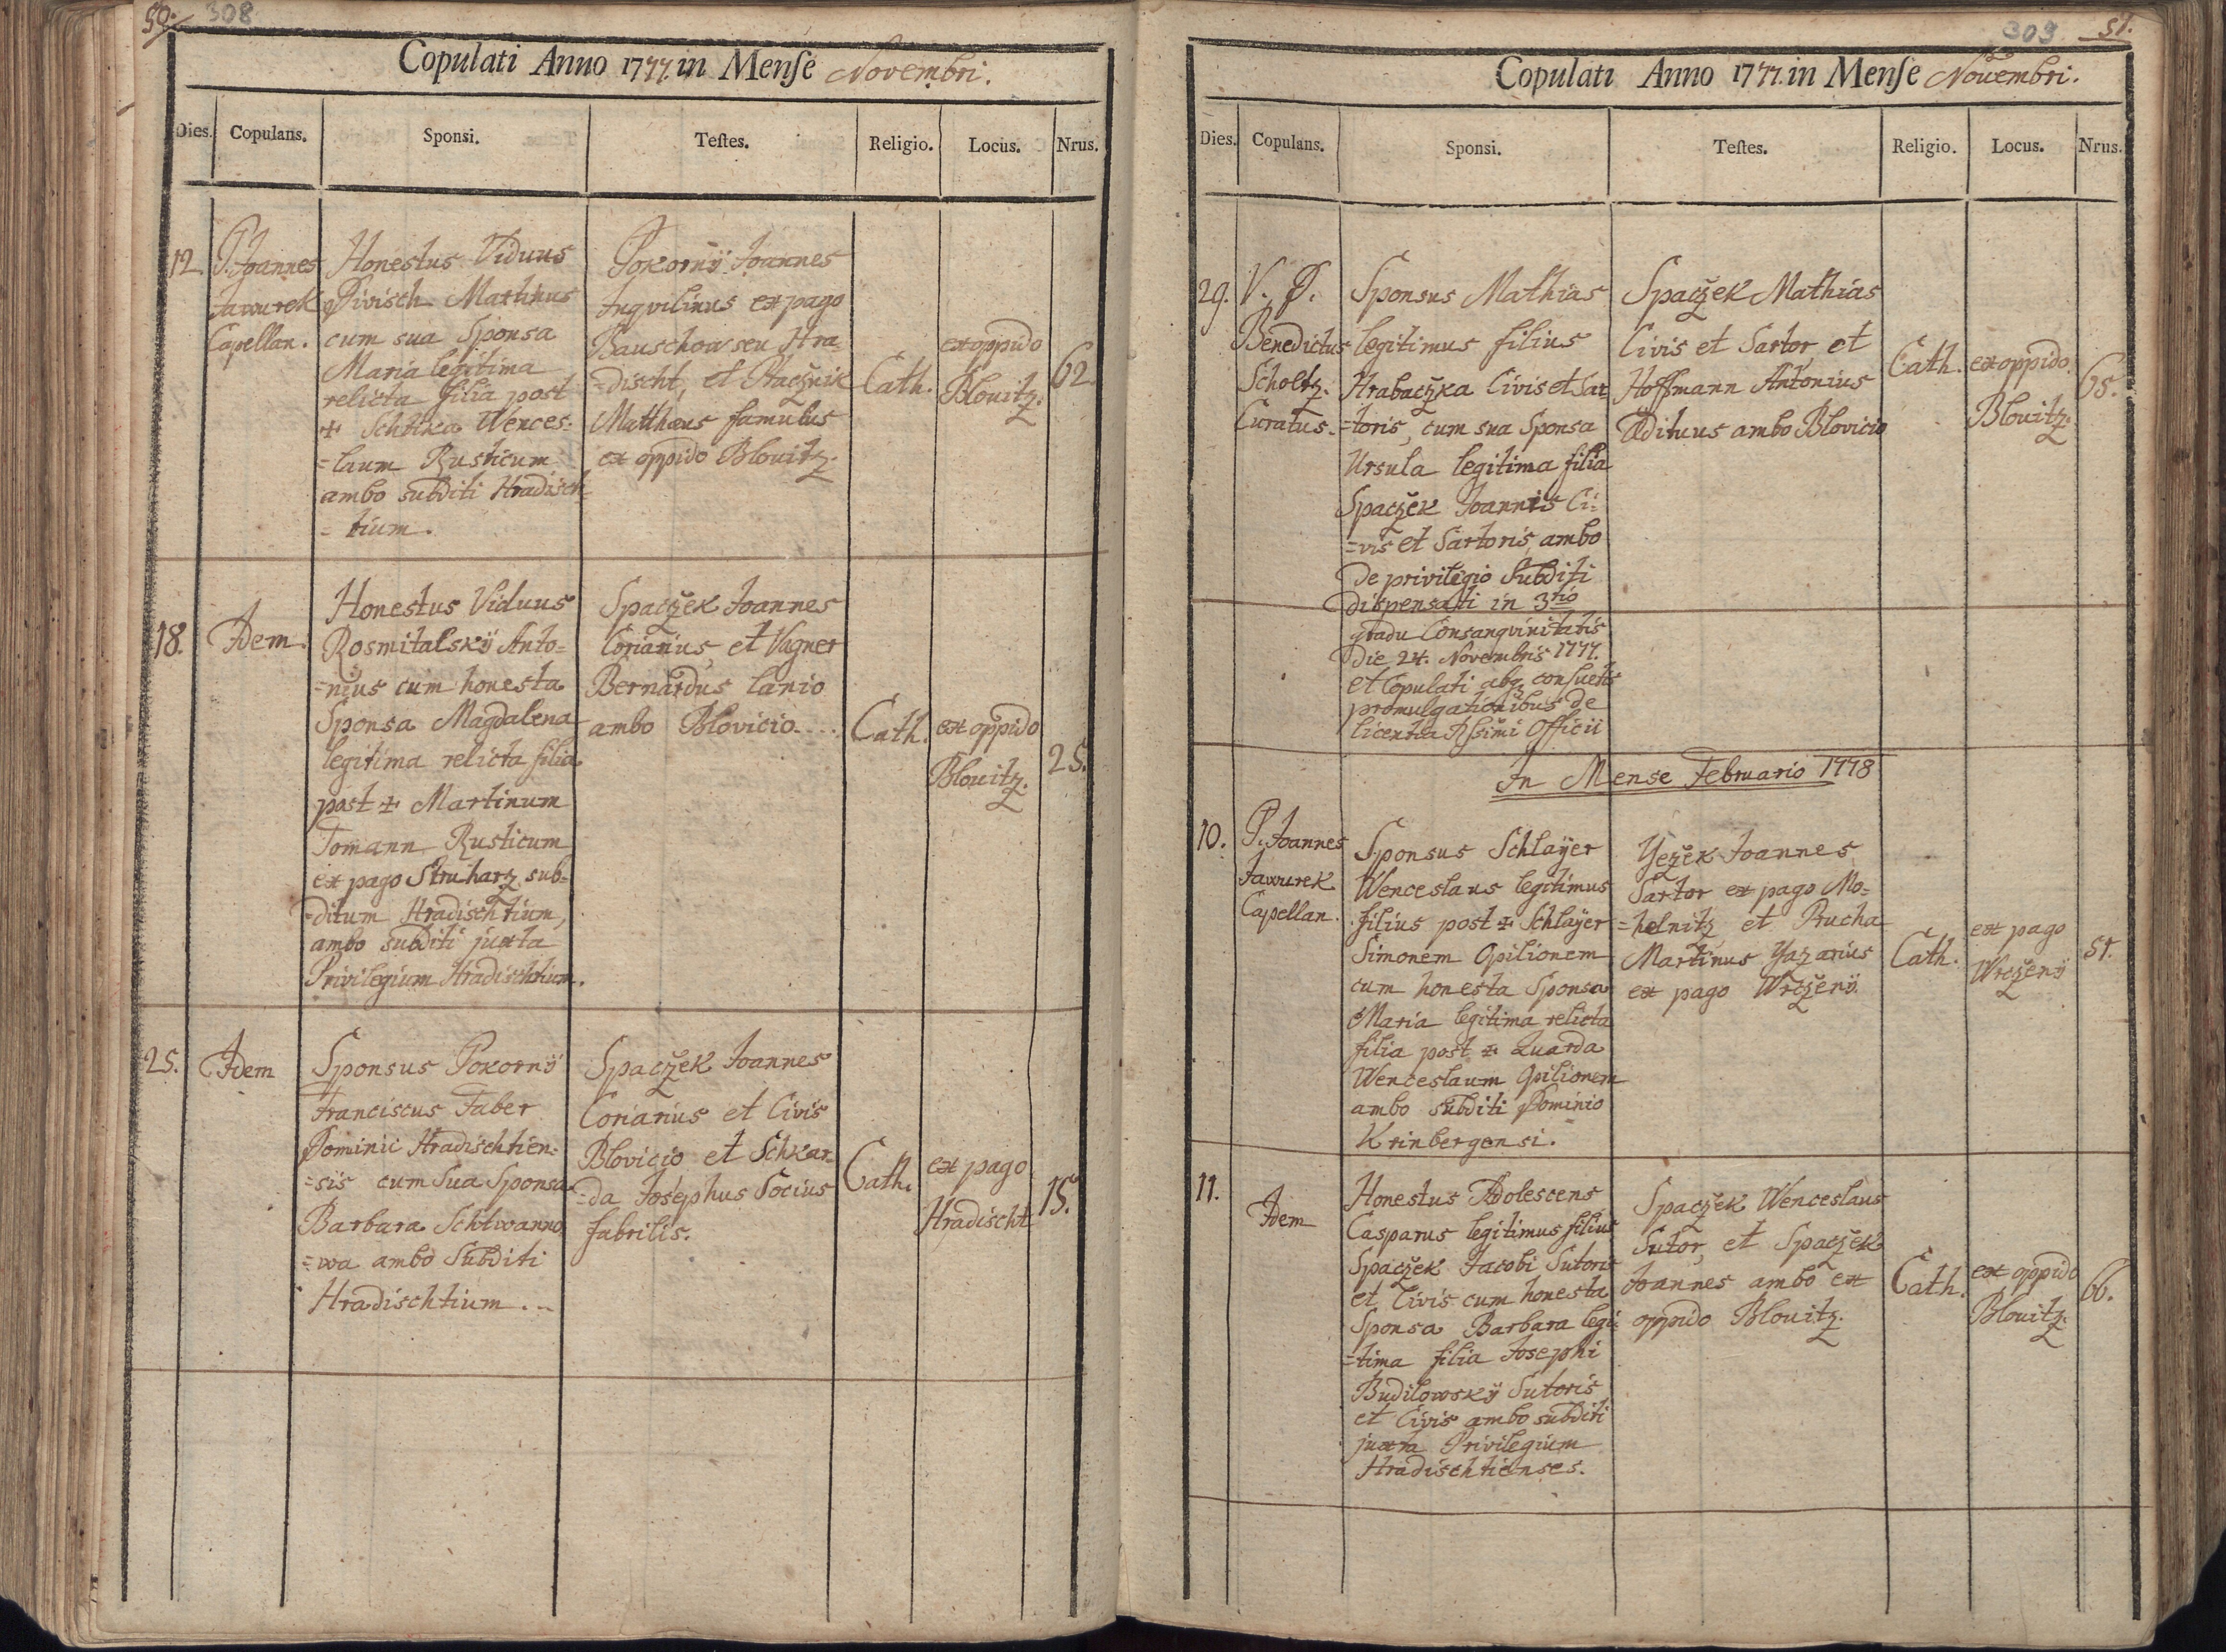 50. 308
Copulati Anno 1777. in Mense Novembri.
Dies. Copulans. Sponsi. Testes. Religio. Locus. Nrus.
12.
P. Joannes
Jawurek
Capellan.
Honestus Viduus
Divisch Martinus
cum sua Sponsa
Maria legitima
relicta filia post
+ Schtika Wences:
=laum Rusticum
ambo subditi Hradisch
=tium.
Pokornÿ Joannes
Inqvilinus ex pago
Bauschow seu Hra-
=discht, et Ptacznik
Matthæus famulus
ex oppido Blouitz.
Cath.
ex oppido
Blouitz.
62.
18.
Idem.
Honestus Viduus
Rosmitalskÿ Anto=
=nius cum honesta
Sponsa Magdalena
legitima relicta filia
post + Martinum
Tomann Rusticum
ex pago Struharz sub=
=ditum Hradischtium,
ambo subditi juxta
Privilegium Hradischtium.
Spaczek Joannes
Coriarius, et Vagner
Bernardus lanio
ambo Blovicio....
Cath.
ex oppido
Blouitz.
25.
25.
Idem
Sponsus Pokornÿ
Franciscus Faber
Dominii Hradischtien:
=sis cum Sua Sponsa
Barbara
=wa ambo Subditi
Hradischtium...
Spaczek Joannes
Coriarius et Civis
Blovicio et Schkar=
=da Josephus Socius
fabrilis.
Cath.
ex pago
Hradischt
15.
309 51.
Copulati Anno 1777. in Mense Nouembri.
Dies. Copulans. Sponsi. Testes. Religio. Locus. Nrus.
29.
V. D.
Benedictus
Scholtz.
Curatus.
Sponsus Mathias
legitimus filius
Hrabaczka Civis et Sar
=toris, cum sua Sponsa
Ursula legitima filia
Spaczek Joannis Ci=
=vis et Sartoris, ambo
de privilegio Subditi
dispensati in 3tio
gradu Consangvinitatis
die 24. Novembris 1777.
et Copulati absq consuetis
promulgationibus de
licentia Rssimi Officii
Spaczek Mathias
Civis et Sartor, et
Hoffmann Antonius
Ædituus ambo Blovicio
Cath.
ex oppido
Blouitz.
65.
In Mense Februario 1778
10.
P. Joannes
Jawurek
Capellan.
Sponsus Schlaÿer
Wenceslaus legitimus
filius post + Schlaÿer
Simonem Opilionem
cum honesta Sponsa
Maria legitima relicta
filia post + Luarda
Wenceslaum Opilionem
ambo subditi Dominio
Krinbergensi.
Yezek Joannes
Sartor ex pago Mo=
=helnitz, et Prucha
Martinus Yazarius
ex pago Wrczenÿ.
Cath.
ex pago
Wrczenÿ
51.
11.
Idem
Honestus Adolescens
Casparus legitimus filius
Spaczek Jacobi Sutoris
et Civis cum honesta
Sponsa Barbara legi=
=tima filia Josephi
Budilowskÿ Sutoris
et Civis ambo subditi
juxta Privilegium
Hradischtienses.
Spaczek Wenceslaus
Sutor, et Spaczek
Joannes ambo ex
oppido Blouitz.
Cath.
ex oppido
Blouitz.
66.